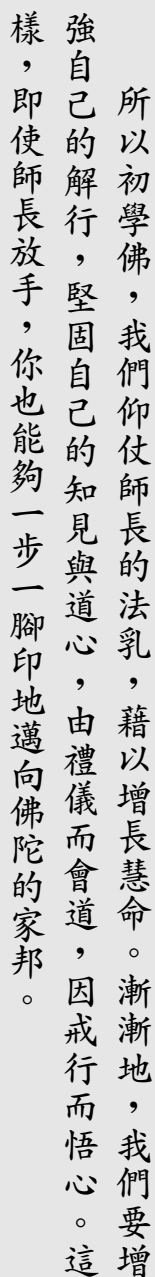 所以初學佛，我們仰仗師長的法乳，藉以增長慧命。漸漸地，我們要增
強自己的解行，堅固自己的知見與道心，由禮儀而會道，因戒行而悟心。這
樣，即使師長放手，你也能夠一步一腳印地邁向佛陀的家邦。